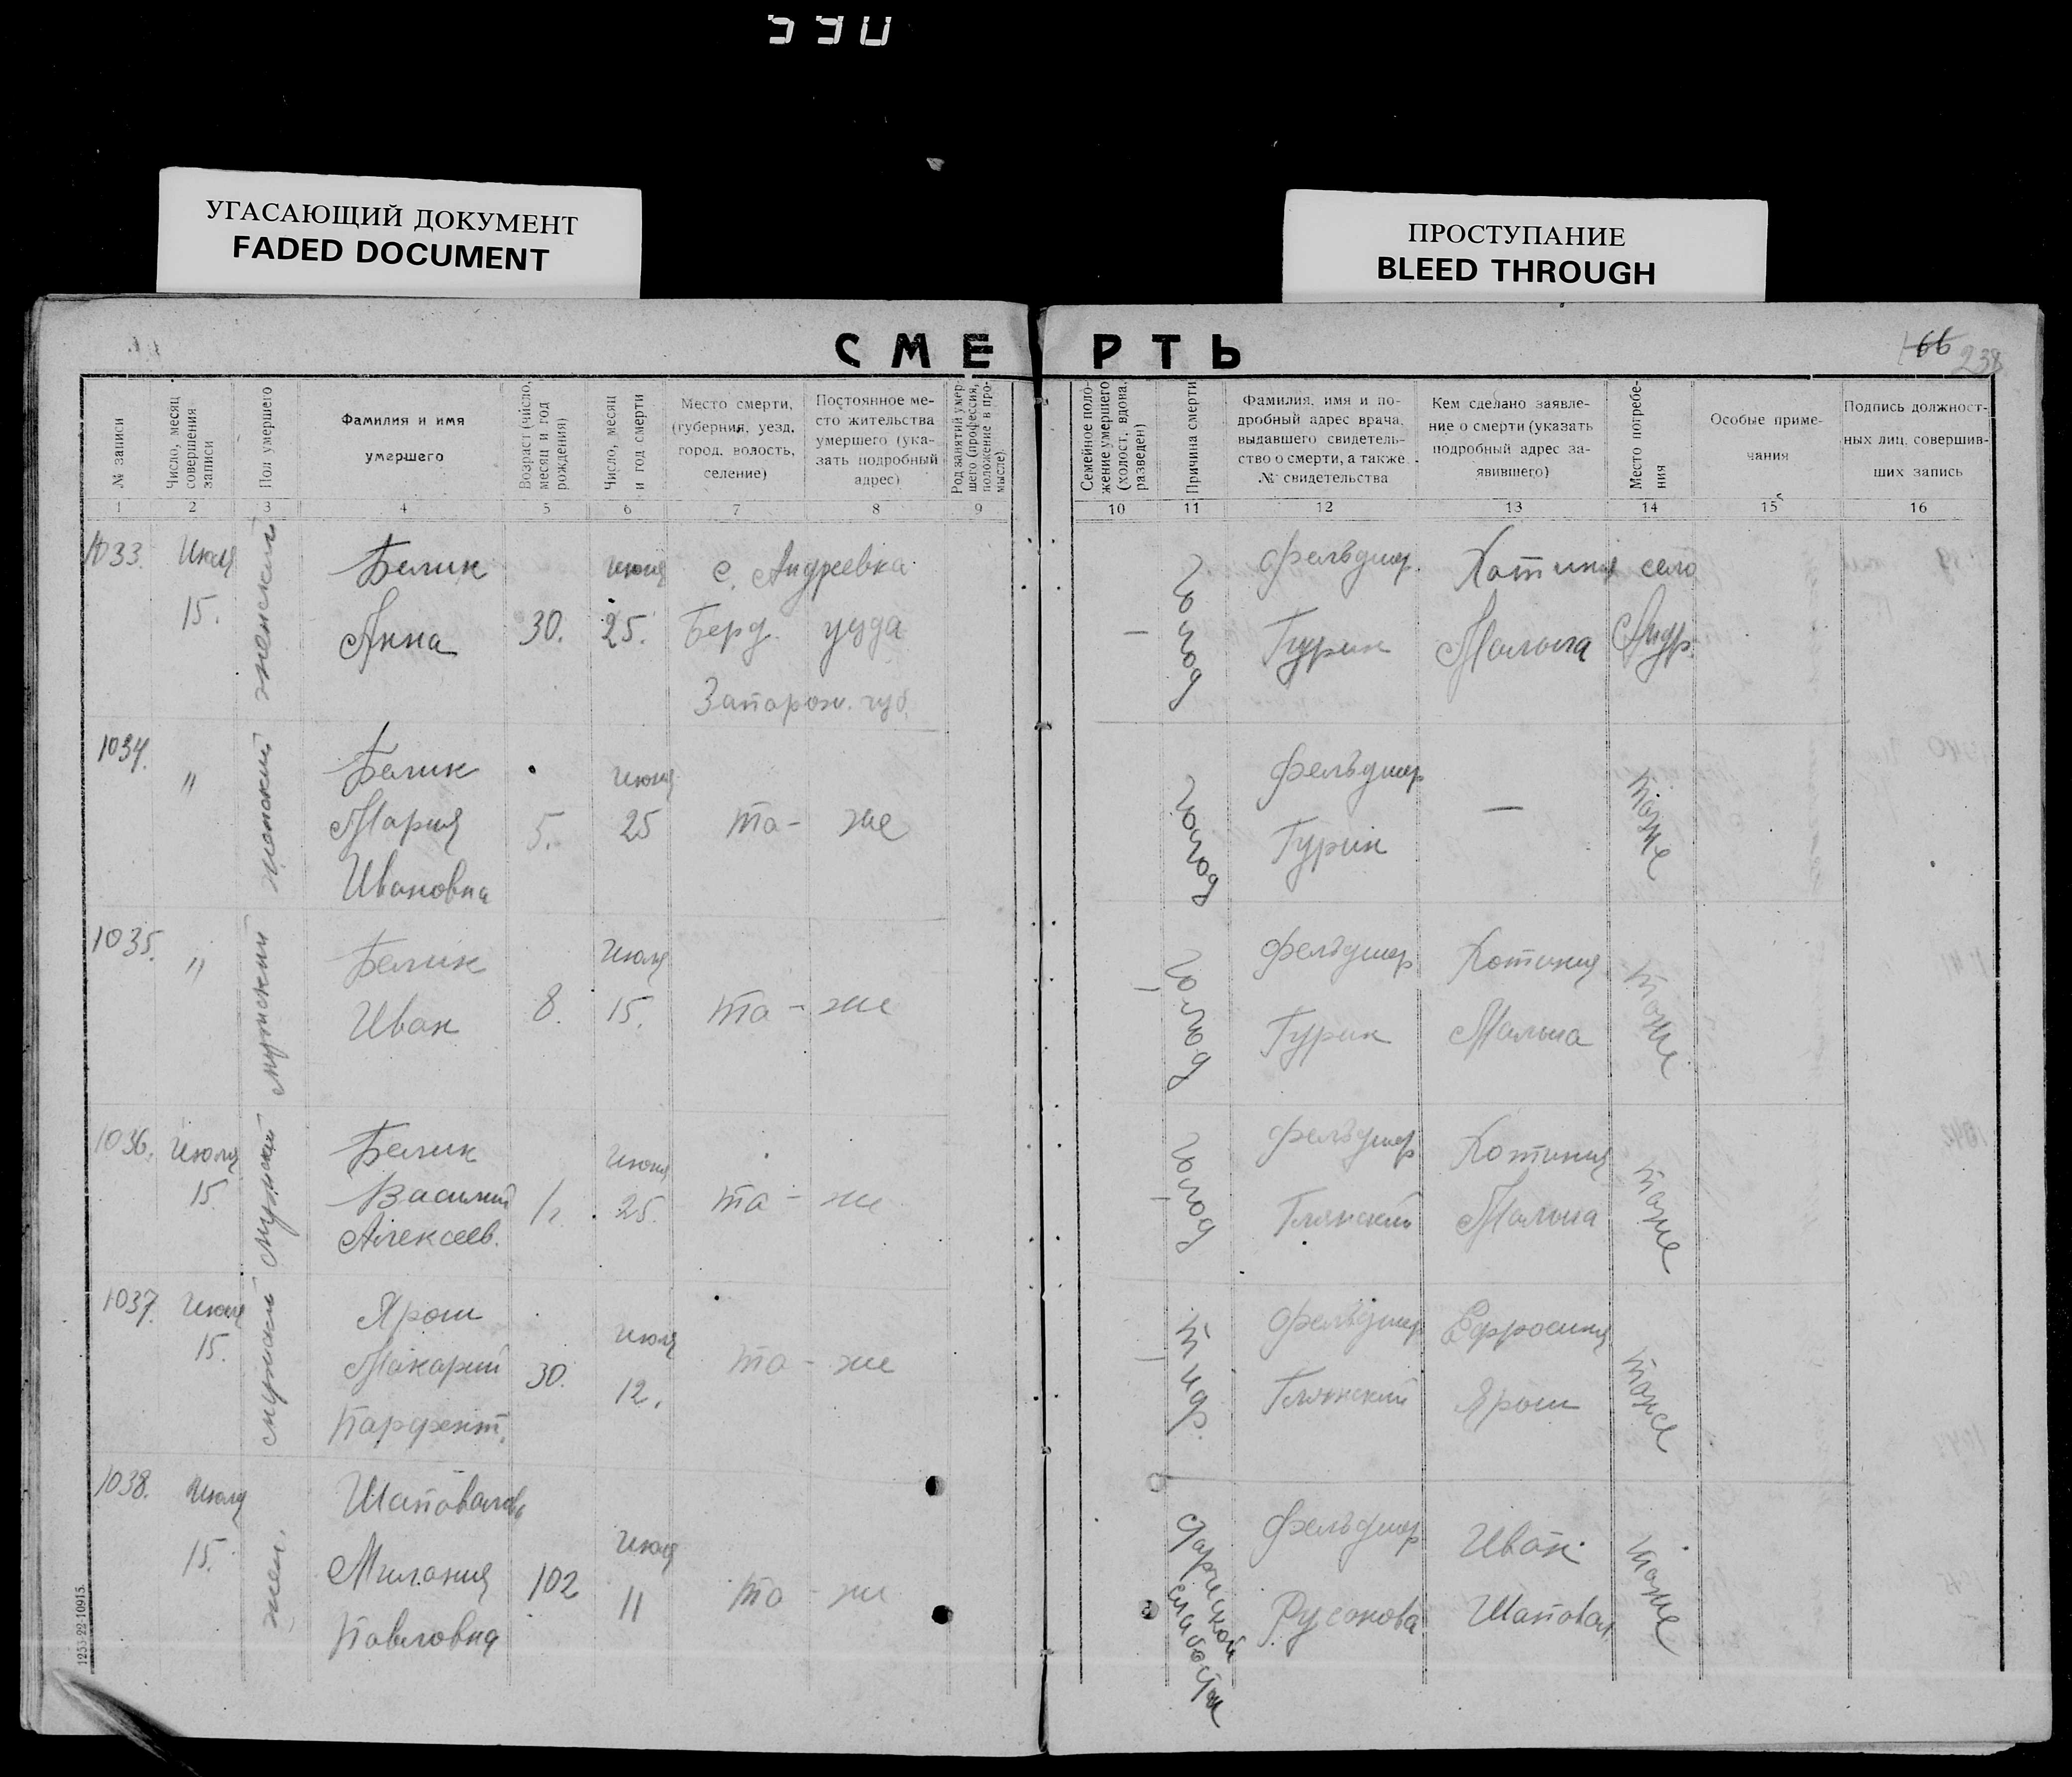 990
УГАСАЮЩИЙ ДОКУМЕНТ
FADED DOCUMENT
ПРОСТУПАНИЕ
BLEED THROUGH
СМЕРТЬ
166 238
№ записи
Число, месяц совершения записи
Пол умершего
Фамилия и имя умершего
Возраст (число, месяц и год рождения)
Число, месяц и год смерти
Место смерти, (губерния, уезд, город, волость, селение)
Постоянное место жительства умершего (указать подробный адрес)
Род занятий умершего (профессия, положение в промысле).
Семейное положение умершего (холост, вдова, разведен)
Причина смерти
Фамилия, имя и подробный адрес врача, выдавшего свидетельство о смерти, а также № свидетельства
Кем сделано заявление о смерти (указать подробный адрес заявившего)
Место погребения
Особые примечания
Подпись должностных лиц, совершивших запись
1 2 3 4 5 6 7 8 9 10 11 12 13 14 15 16
1033. Июля 15. женский Белик Анна 30. июня 25. с. Андреевка Берд. уезда Запорож. губ. — голод фельдшер Гурин Хотиния Малыга село Андр.
1034. " женский Белик Мария Ивановна 5. июня 25 та-же голод фельдшер Гурин — тоже
1035. " мужский Белик Иван 8. июля 15. та-же — голод фельдшер Гурин Хотиния тоже
1036. Июля 15. мужский Белик Василий Алексеев. июня 25. та-же — голод фельдшер Хотиния тоже
1037. Июля 15. Ярош Макарий Парфент. 30. июля 12. та-же — тиф. фельдшер Ефросиния Ярош тоже
1038. Июля 15. жен. Шаповалова Милания Павловна 102 июля 11 та-же слабости фельдшер Русанова Иван Шаповал. тоже
1253-22-10915.